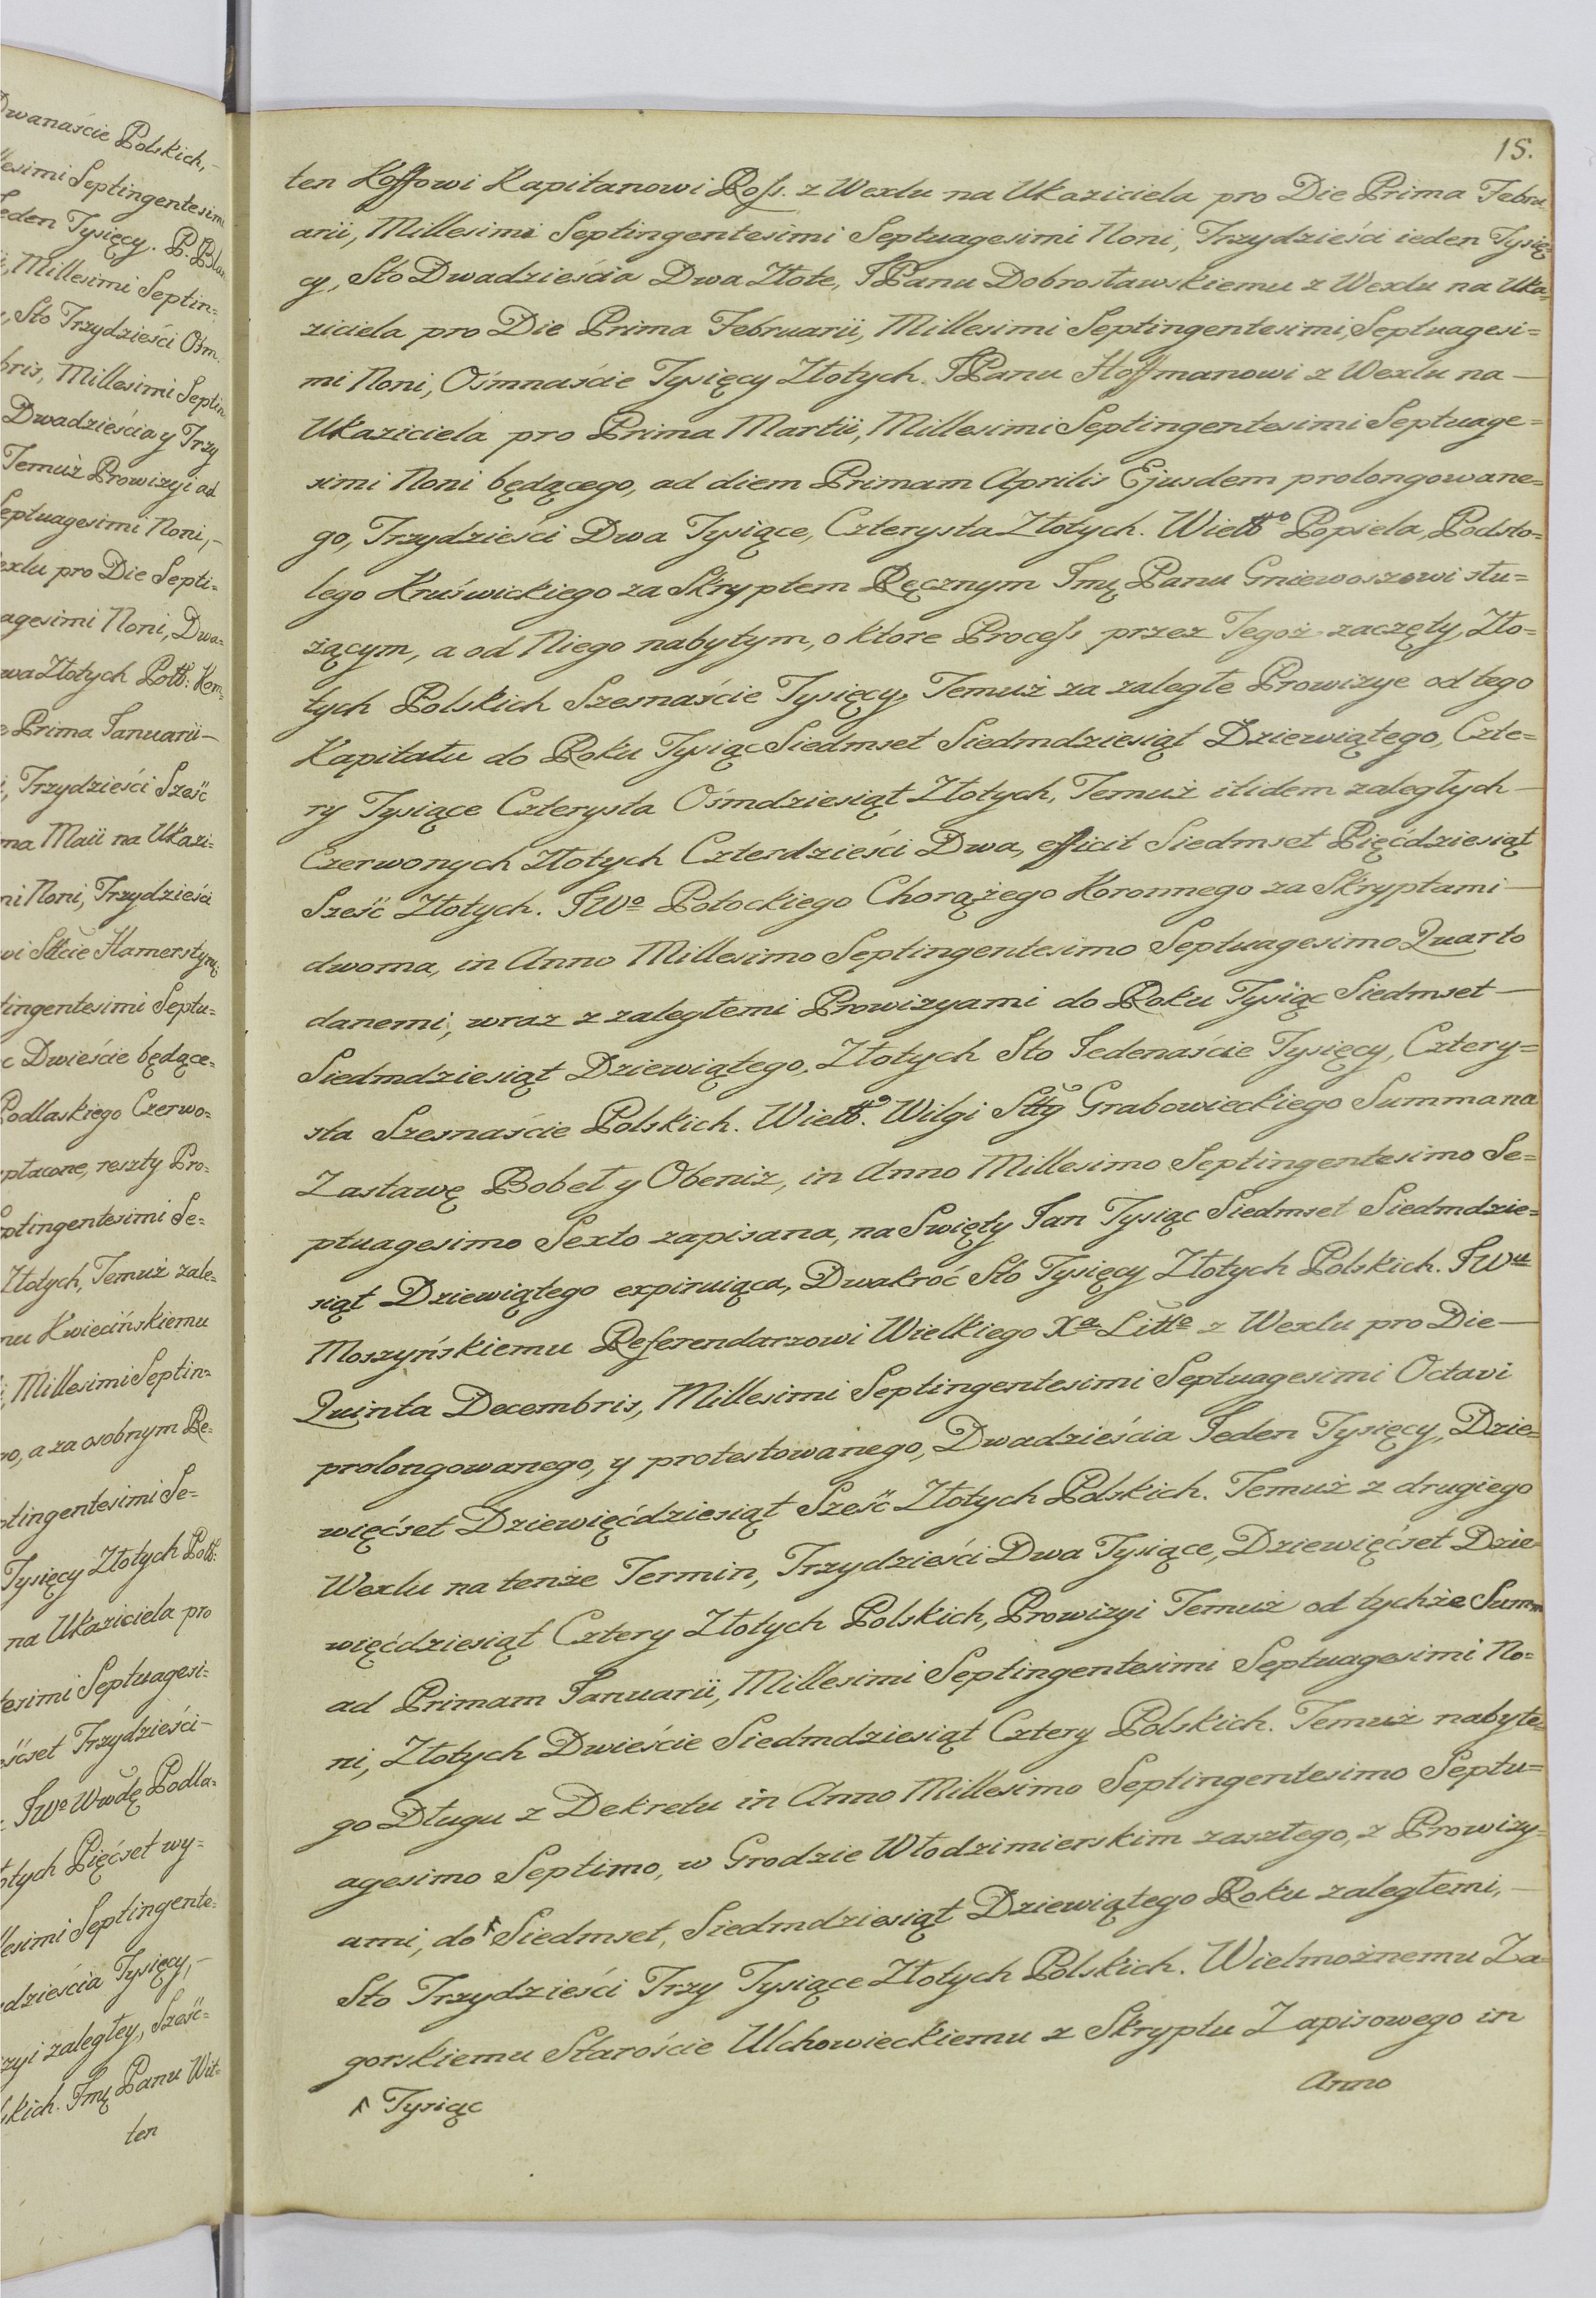 Dwanaście Polskich,
lesimi Septingentesimi
Jeden Tysięcy. P. Blan
Millesimi Septin=
Sto Trzydzieści Ośm
bris, Millesimi Septin
Dwadzieścia y Trzy
Temuż Prowizyi ad
Septuagesimi Noni, –
exlu pro Die Septi=
agesimi Noni, Dwa=
wa Złotych Polk: Kom=
e Prima Januarii –
, Trzydzieści Sześć
ma Maii na Ukazi=
mi Noni, Trzydzieści
wi Sttcie Hamerstyn
tingentesimi Septu=
c Dwieście będące=
Podlaskiego Czerwo=
płacone, reszty Pro=
ptingentesimi Se=
Złotych, Temuż zale=
mu Kwiecińskiemu
, Millesimi Septin=
no, a za osobnym Re=
ptingentesimi Se=
Tysięcy Złotych Polk:
na Ukaziciela pro
tesimi Septuagesi=
eśćset Trzydzieści –
JWo Wwdę Podla=
otych Pięćset wy=
llesimi Septingente=
dzieścia Tysięcy, –
zyi zaległey, Sześć=
lskich. Jmę Panu Wit=
ten
15.
ten Hoffowi Kapitanowi Ross. z Wexlu na Ukaziciela pro Die Prima Febru
arii, Millesimi Septingentesimi Septuagesimi Noni, Trzydzieści ieden Tysię=
cy, Sto Dwadzieścia Dwa Złote, JPanu Dobrosławskiemu z Wexlu na Uka=
ziciela pro Die Prima Februarii, Millesimi Septingentesimi, Septuagesi=
mi Noni, Ośmnaście Tysięcy Złotych. JPanu Hoffmanowi z Wexlu na –
Ukaziciela pro Prima Martii, Millesimi Septingentesimi Septuage=
simi Noni będącego, ad diem Primam Aprilis Ejusdem prolongowane=
go, Trzydzieści Dwa Tysiące, Czterysta Złotych. Wielko Popiela, Podsto=
lego Kruświckiego za Skryptem Ręcznym Jmę Panu Gniewoszowi słu=
żącym, a od Niego nabytym, o ktore Process przez Tegoż zaczęty, Zło=
tych Polskich Szesnaście Tysięcy, Temuż za zaległe Prowizye od tego
Kapitału do Roku Tysiąc Siedmset Siedmdziesiąt Dziewiątego, Czte=
ry Tysiące Czterysta Ośmdziesiąt Złotych, Temuż itidem zaległych –
Czerwonych Złotych Czterdzieści Dwa, efficit Siedmset Pięćdziesiąt
Sześć Złotych. JWo Potockiego Chorążego Koronnego za Skryptami –
dwoma, in Anno Millesimo Septingentesimo Septuagesimo Quarto
danemi, wraz z zaległemi Prowizyami do Roku Tysiąc Siedmset –
Siedmdziesiąt Dziewiątego, Złotych Sto Jedenaście Tysięcy, Cztery=
sta Szesnaście Polskich. Wielko. Wilgi Sttg Grabowieckiego Summa na
Zastawę Bobeł y Obeniż, in Anno Millesimo Septingentesimo Se=
ptuagesimo Sexto zapisana, na Swięty Jan Tysiąc Siedmset Siedmdzie=
siąt Dziewiątego expiruiąca, Dwakroć Sto Tysięcy Złotych Polskich. JWu
Moszyńskiemu Referendarzowi Wielkiego Xa Litto z Wexlu pro Die –
Quinta Decembris, Millesimi Septingentesimi Septuagesimi Octavi
prolongowanego, y protestowanego, Dwadzieścia Jeden Tysięcy, Dzie=
więćset Dziewięćdziesiąt Sześć Złotych Polskich. Temuż z drugiego
Wexlu na tenże Termin, Trzydzieści Dwa Tysiące, Dziewięćset Dzie=
więćdziesiąt Cztery Złotych Polskich, Prowizyi Temuż od tychże Summ
ad Primam Januarii, Millesimi Septingentesimi Septuagesimi No=
ni, Złotych Dwieście Siedmdziesiąt Cztery Polskich. Temuż nabyte=
go Długu z Dekretu in Anno Millesimo Septingentesimo Septu=
agesimo Septimo, w Grodzie Włodzimierskim zaszłego, z Prowizy=
ami, do Siedmset, Siedmdziesiąt Dziewiątego Roku zaległemi, –
Sto Trzydzieści Trzy Tysiące Złotych Polskich. Wielmożnemu Za=
gorskiemu Staroście Ulchowieckiemu z Skryptu Zapisowego in
Tysiąc
Anno